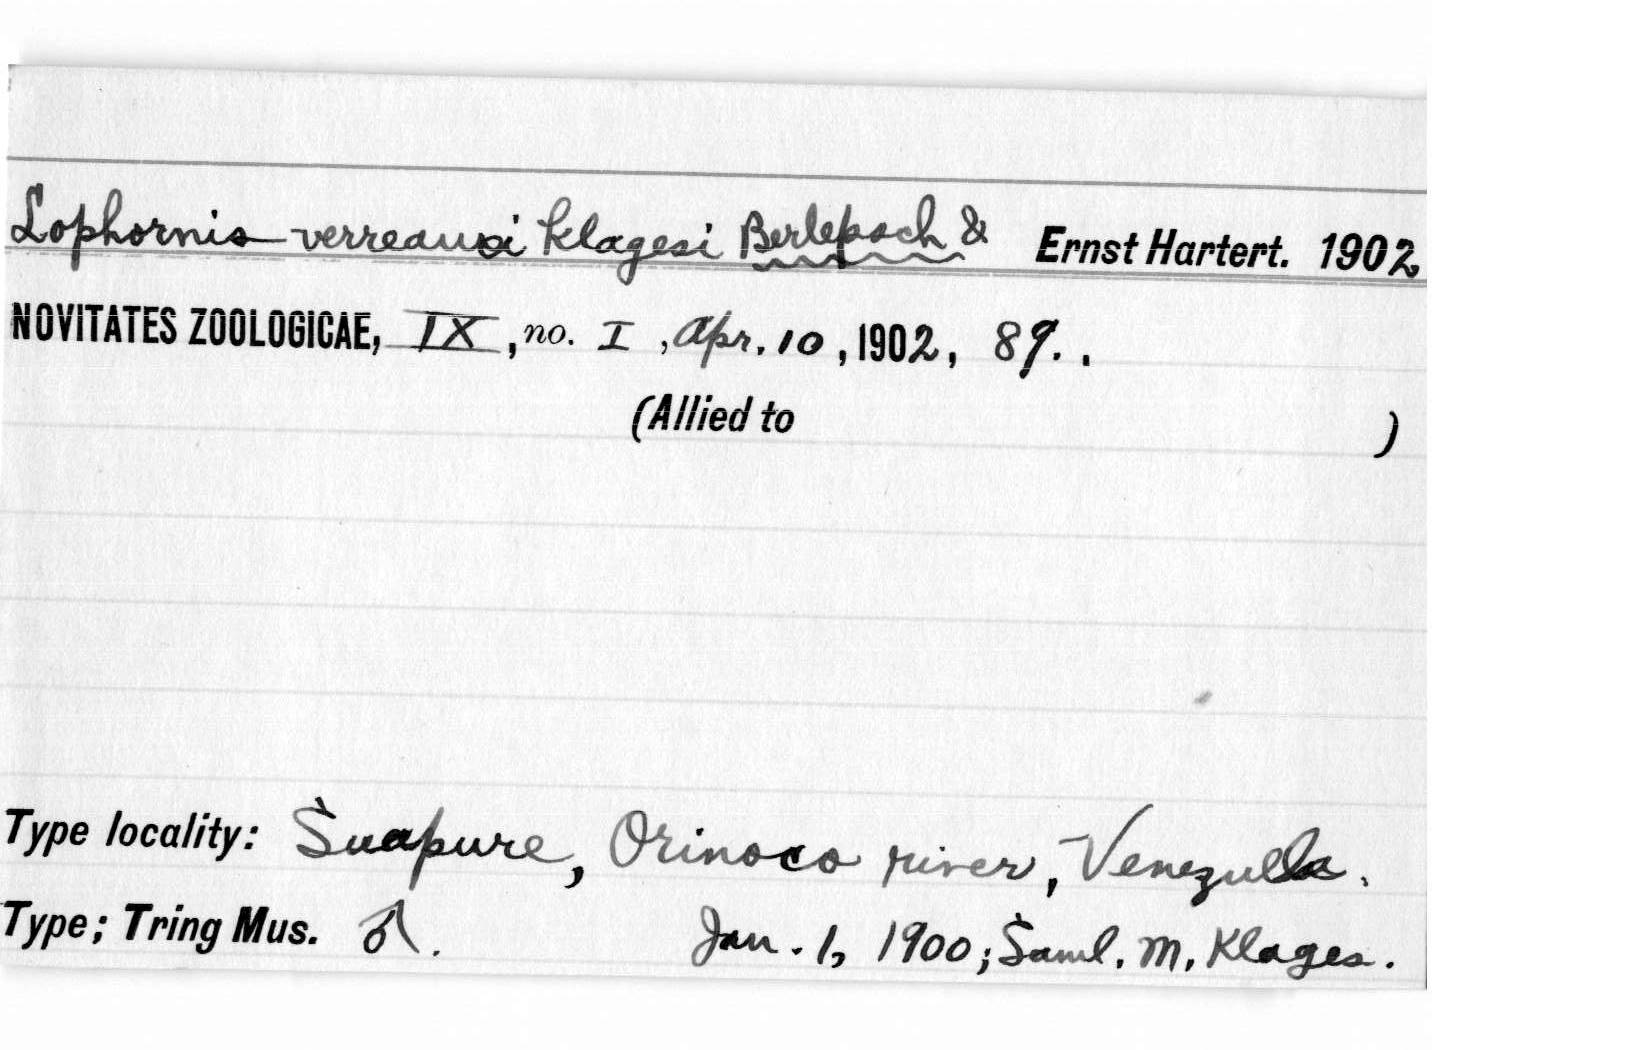 Lophornis verreauxi klagesi Berlepsch & Ernst Hartert. 1902
NOVITATES ZOOLOGICAE, IX, no. I, Apr. 10, 1902, 89. .
(Allied to )
Type locality: Suapure, Orinoco river, Venezuela.
Type; Tring Mus. ♂. Jan. 1, 1900; Saml. M. Klages.